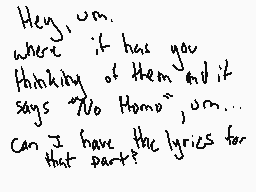 Hey, um.
where it has you
thinking of them and it
says "No Homo", um...
can I have the lyrics for
that part?